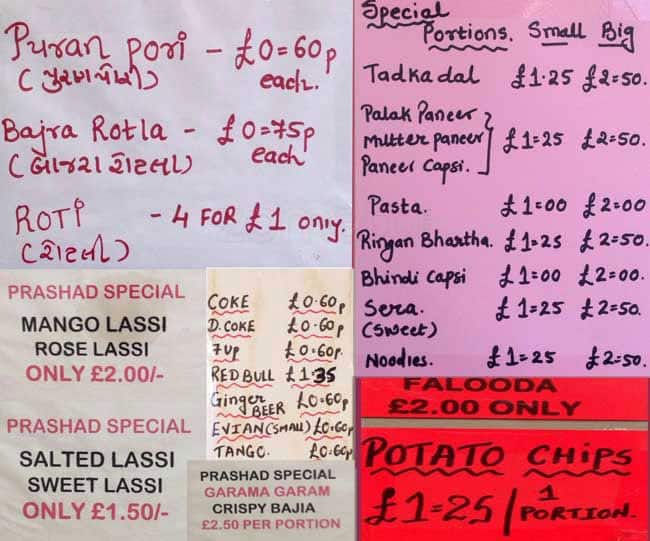 Puran pori - £0=60p
(પુરણ પોળી) each.
Bajra Rotla - £0=75p
(બાજરા રોટલા) each
ROTI - 4 FOR £1 only.
(રોટલી)
Special
Portions. Small Big
Tadka dal £1.25 £2=50.
Palak Paneer
Mutter paneer £1=25 £2=50.
Paneer Capsi.
Pasta. £1=00 £2=00
Ringan Bhartha. £1=25 £2=50.
Bhindi Capsi £1=00 £2=00.
Sera. £1=25 £2=50.
(sweet)
Noodles. £1=25 £2=50.
PRASHAD SPECIAL
MANGO LASSI
ROSE LASSI
ONLY £2.00/-
PRASHAD SPECIAL
SALTED LASSI
SWEET LASSI
ONLY £1.50/-
COKE £0.60p
D.COKE £0.60p
7up £0.60p.
RED BULL £1.35
Ginger BEER £0.60p
EVIAN(SMALL) £0.60p
TANGO. £0.60p
PRASHAD SPECIAL
GARAMA GARAM
CRISPY BAJIA
£2.50 PER PORTION
FALOODA
£2.00 ONLY
POTATO CHIPS
£1=25 / 1 PORTION.